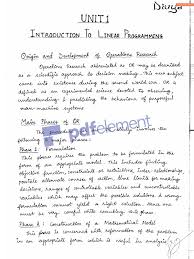 Divya
UNIT 1
INTRODUCTION TO LINEAR PROGRAMMING
Origin and Development of Operations Research
Operations Research abbreviated as OR may be described
as a scientific approach to decision making. This new subject
came into existence during the second world war. OR is
defined as an experimental science devoted to observing
understanding & predicting the behaviour of purposeful
man-machine systems
Main Phases of OR
pdfelement
the following
phases.
Phase I
This phase requires the problem to be formulated in the
form of an appropriate model. This includes finding
objective function, constraints or restrictions, inter-relationships,
possible alternate course of action, time limits for making
decisions, ranges of controllable variables and uncontrollable
variables which may affect the possible solutions. A wrong
formulation cannot yield a right solution. Hence one
must be very with executing this phase
Phase II : Construction of a Mathematical Model
This phase is concerned with reformation of the problem
in an appropriate form which is useful in analysis